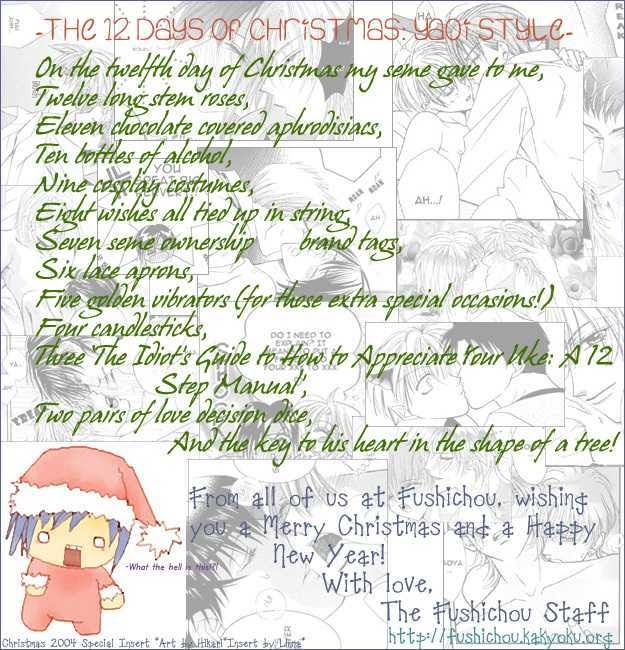 -THE 12 DAYS OF CHRISTMAS: YAOI STYLE-
On the twelfth day of Christmas my seme gave to me,
Twelve long stem roses,
Eleven chocolate covered aphrodisiacs,
Ten bottles of alcohol,
Nine cosplay costumes,
Eight wishes all tied up in string,
Seven seme ownership brand tags,
Six lace aprons,
Five golden vibrators (for those extra special occasions!)
Four candlesticks,
Three 'The Idiot's Guide to How to Appreciate Your Uke: A 12
Step Manual',
Two pairs of love decision dice,
And the key to his heart in the shape of a tree!
From all of us at Fushichou, wishing
you a Merry Christmas and a Happy
New Year!
With love,
The Fushichou Staff
http://fushichou.kakyoku.org
-What the hell is this?!!
Christmas 2004 Special Insert *Art by Hikari*Insert by
HA!
AH...!
YOU
GREAT BIG
DO I NEED TO
EXPLAIN? IT
YOUR XX TO XXX
YA...
AH